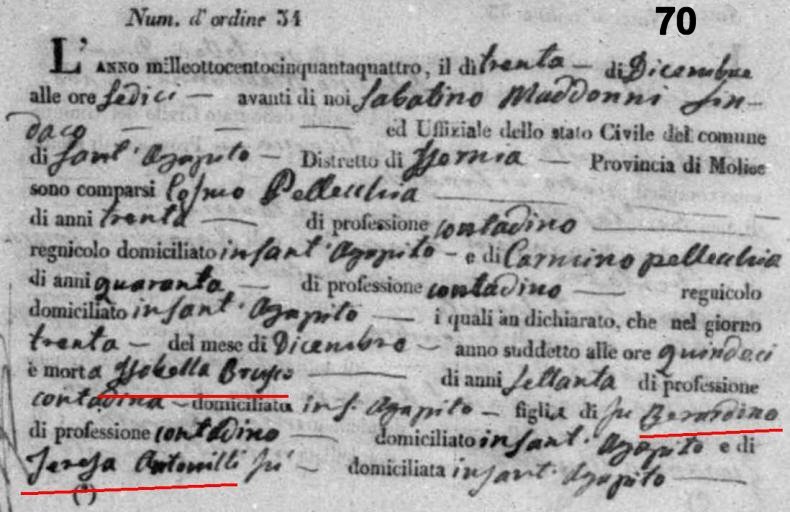 70
Num. d'ordine 34
L'ANNO milleottocentocinquantaquattro, il dì trenta — di Dicembre
alle ore sedici — avanti di noi Sabatino Maddonni Sin-
daco — — — ed Uffiziale dello stato Civile del comune
di Sant'Agapito — Distretto di Isernia — Provincia di Molise
sono comparsi Cosmo Pellecchia —
di anni trenta — di professione contadino —
regnicolo domiciliato in Sant'Agapito — e di Carmino pellecchia
di anni quaranta — di professione contadino — regnicolo
domiciliato in Sant'Agapito — i quali àn dichiarato, che nel giorno
trenta — del mese di Dicembre — anno suddetto alle ore quindici
è morta Isabella Brusco — di anni settanta di professione
contadina — domiciliata in S. Agapito — figlia di fu Berardino
di professione contadino — domiciliato in Sant'Agapito e di
Teresa Antonilli — domiciliata in Sant'Agapito —
(*)